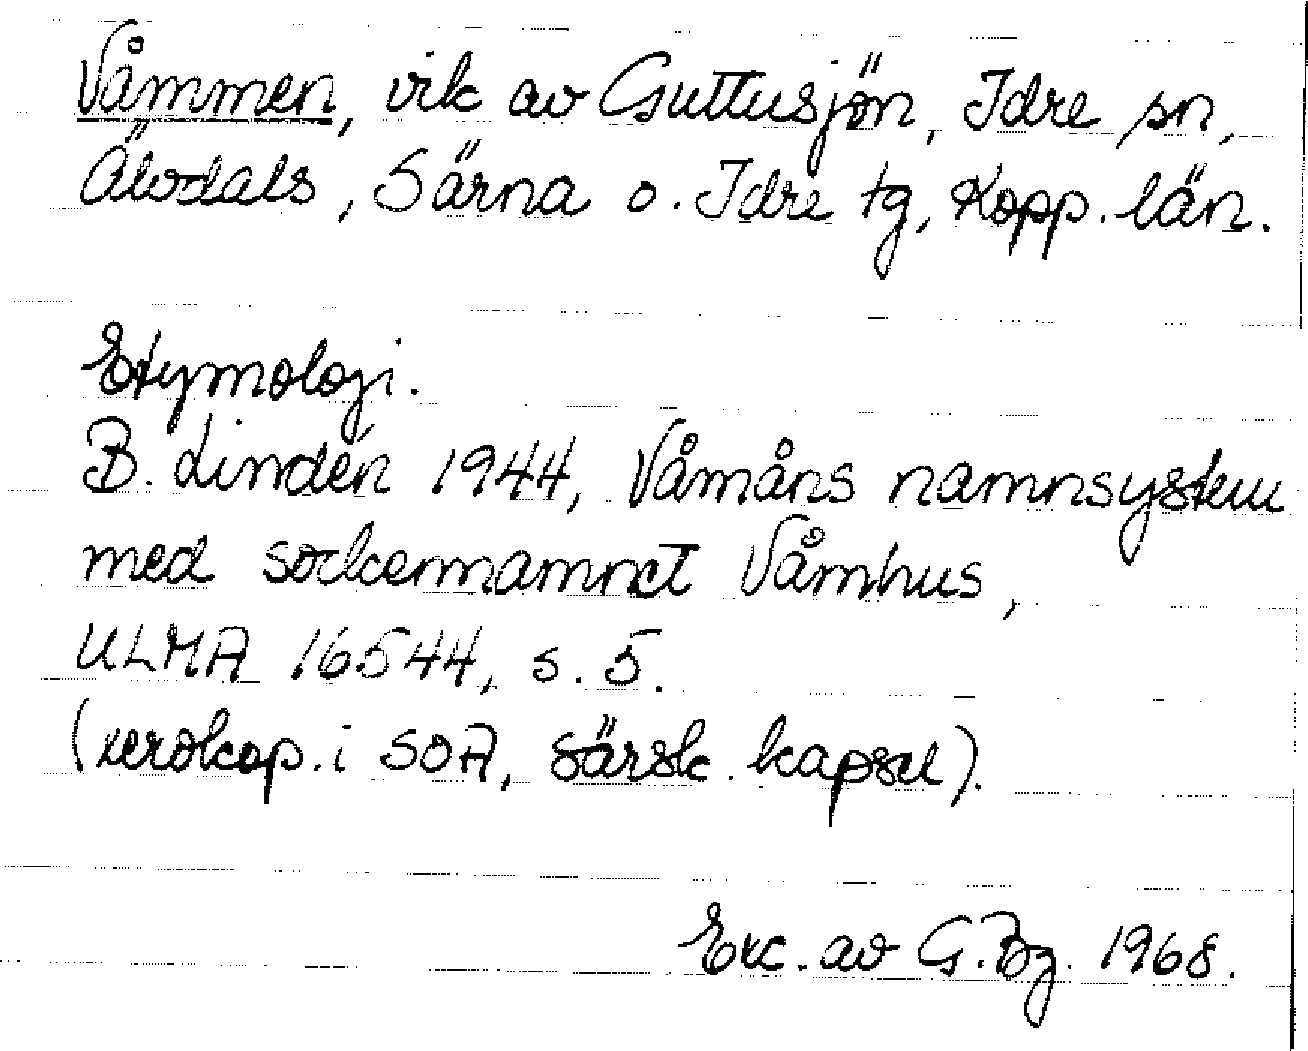 Våmmen, vik av Guttusjön, Idre sn,
Älvdals, Särna o. Idre tg, Kopp. län.
Etymologi.
B. Lindén 1944, Våmåns namnsystem
med sockennamnet Våmhus,
ULMA 16544, s. 5.
(xerokop. i SOA, särsk. kapsel).
Exc. av G. Bg. 1968.